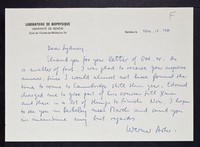 LABORATOIRE DE BIOPHYSIQUE
UNIVERSITÉ DE GENÈVE
F
Dear Sydney,
Thank you for your letter of Oct. 25. As
a matter of fact, I was glad to receive your negative
answer, since I would almost not have found the
time to come to Cambridge still this year.
charged me to give part of his courses this term
and there is a lot of things to finish now. I hope
to see you in Berkeley next March and send you
in meantime my best regards
Werner Arber